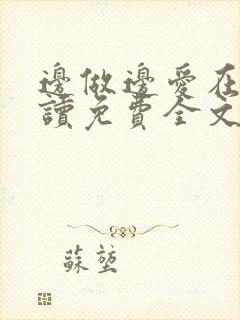 邊做邊愛在
讀免費全文
蘇堃